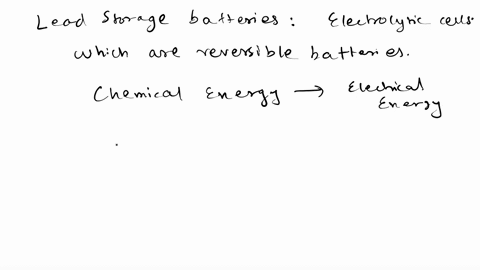 Lead Storage batteries : Electrolytic cells
which are reversible batteries.
Chemical Energy → Electrical
Energy